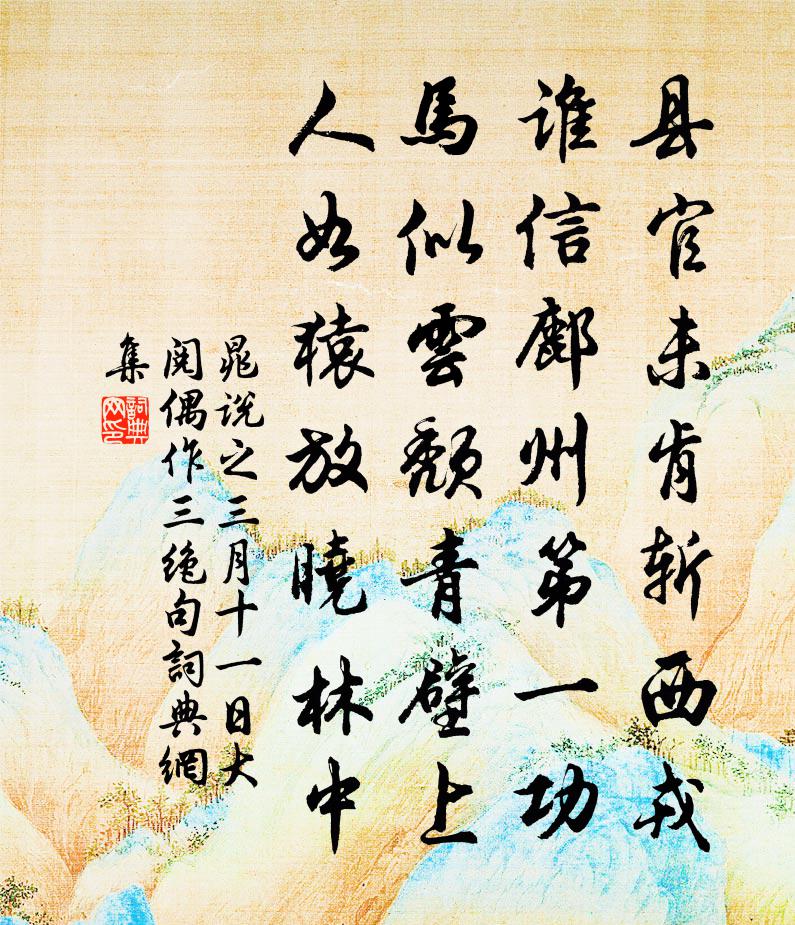 县官未肯斩西戎
谁信鄜州第一功
馬似雲頹青壁上
人如猿放曉林中
晁说之三月十一日大
阅偶作三绝句詞典網
集
詞典
网印